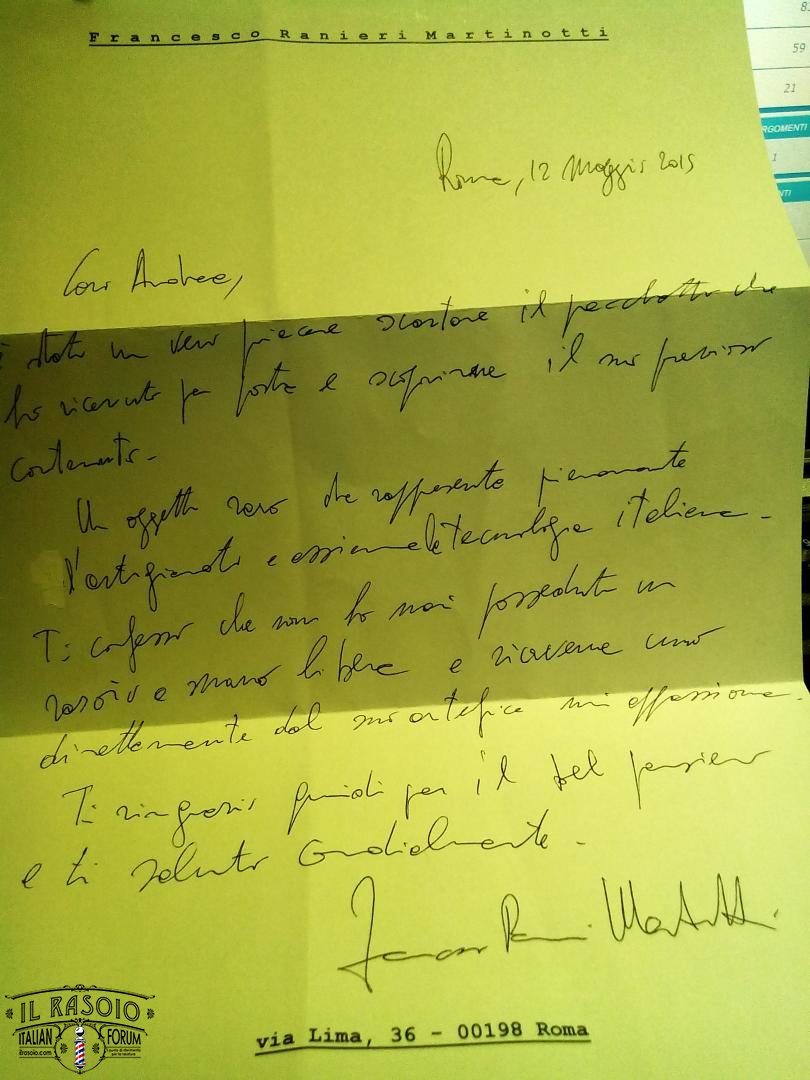 Francesco Ranieri Martinotti
Roma, 12 Maggio 2015
Caro Andrea,
è stato un vero piacere scartare il pacchetto che
ho ricevuto per posta e scoprirne il suo prezioso
contenuto.
Un oggetto raro che rappresenta pienamente
l'artigianato e assieme la tecnologia italiana.
Ti confesso che non ho mai posseduto un
rasoio a mano libera e riceverne uno
direttamente dal suo artefice mi appassiona.
Ti ringrazio quindi per il bel pensiero
e ti saluto cordialmente.
Francesco Ranieri Martinotti
via Lima, 36 - 00198 Roma
IL RASOIO
ITALIAN FORUM
ilrasoio.com
59
21
RGOMENTI
1
NTI